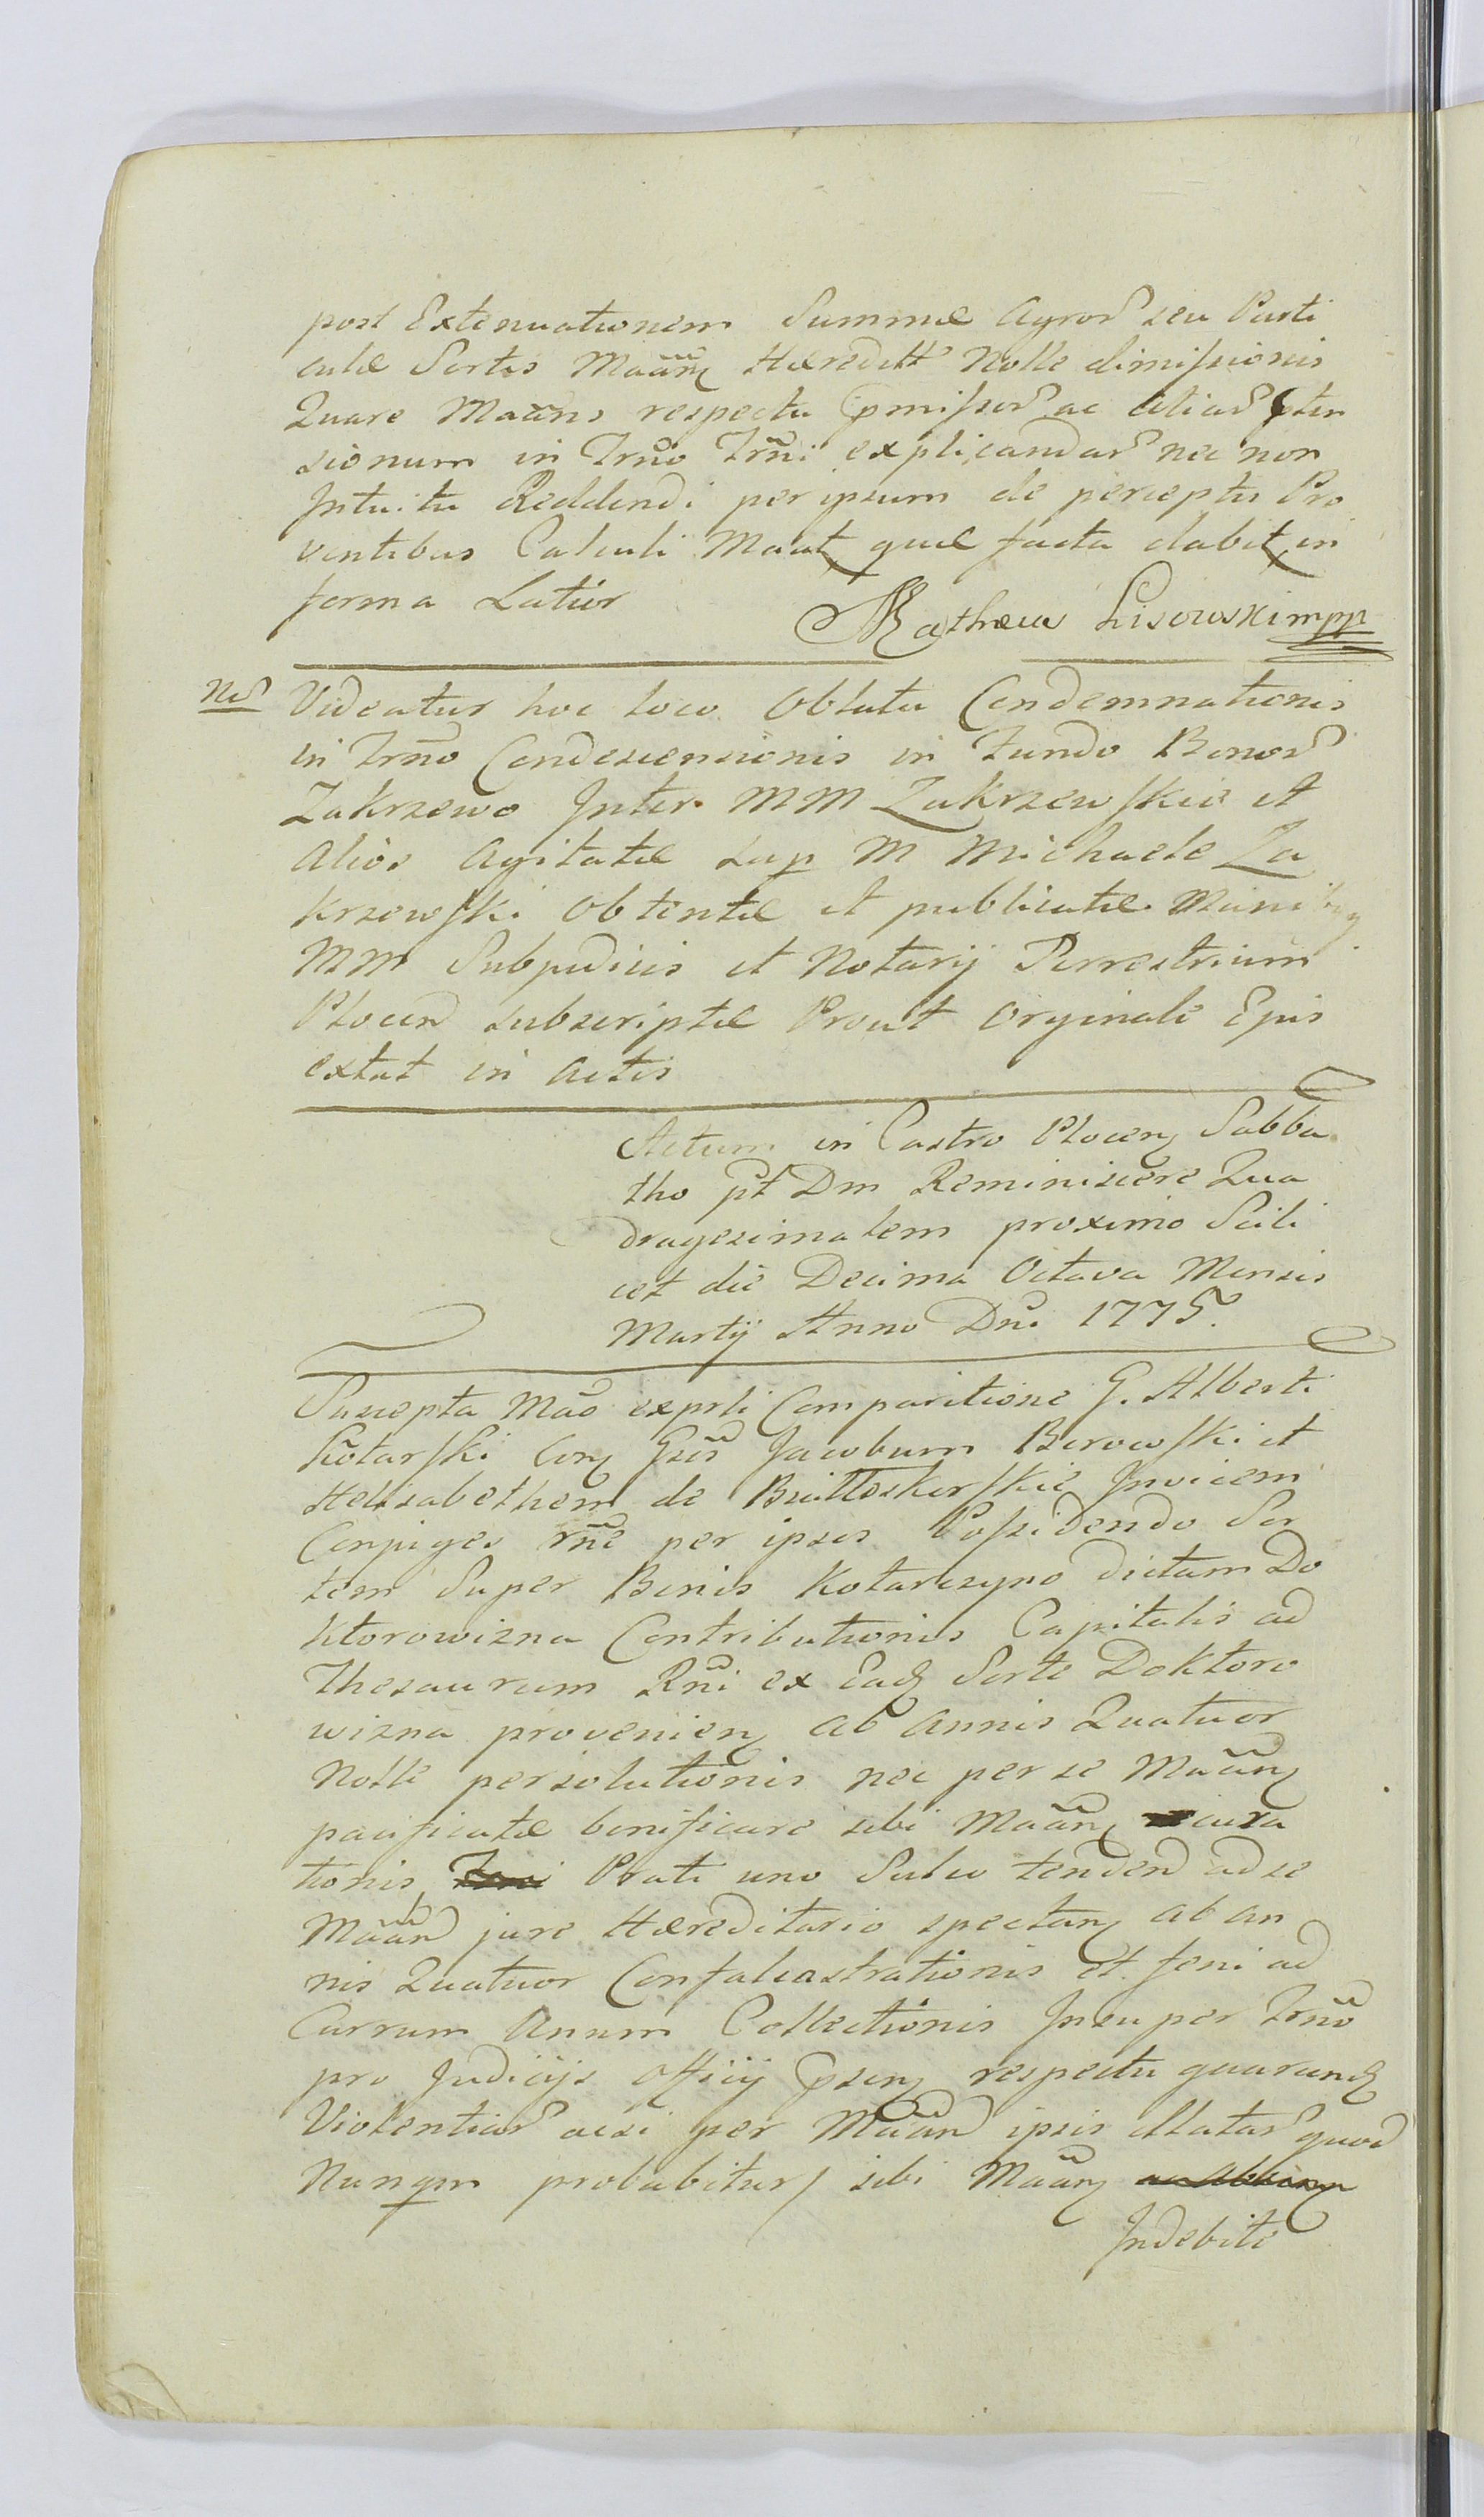 post Extenuationem Summæ Agror̃ seu Parti
culæ Sortis Maãm Hæreditt̃ Nolle dimissionis
Quare Maãns respectu p̃missor̃ ac aliar̃ p̃ten
sionum in Trñõ Trñi explicandar̃ nec non
Intuitu Reddendi per ipsum de perceptis Pro
ventibus Calculi Maat quæ facta dabit in
forma Latior
Mathæus Lisowski mpp
Nõ Videatur hoc loco Oblata Condemnationis
in Trñõ Condescensionis in Fundo Bonor̃
Zakrzewo Inter MM Zakrzewskie et
Alios Agitatæ sup M Michaele Za
krzewski Obtentæ et publicatæ Mani
MM Subjudicis et Notarij Terrestrium
Plocen̄ subscriptæ Prout Oryginale Ejus
extat in Actis
Actum in Castro Plocen Sabba
tho p̃t Dm Reminiscere Qua
dragesimalem proximo Scili
cet die Decima Octava Mensis
Martij Anno Dñi 1775.
Suscepta Maõ exprli Comparitione G. Alberti
Kõtarski Con Gsõs Jacobum Borowski et
Helisabetham de Invicem
Conjuges rñe per ipsos Possidendo Sor
tem Super Bonis Kotarczyno dictam Do
ktorowizna Contributionis Capitalis ad
Thesaurum Rñi ex Ead Sorte Doktoro
wizna provenien ab annis Quatuor
Nolle persolutionis nec per se Maãn
pacificatæ bonificare sibi Maãn
tionis Prati uno Sulco tenden̄ ad se
Maãn̄ jure Hæreditario spectan ab an
nis Quatuor Confalcastrationis et feni ad
Currum Unum Collectionis Insuper Trñõ
pro Judicijs Officij p̃sen respectu quarund
Violentiar̃ acsi per Maãn̄ ipsis illatar̃ quod
Nunqm probabitur/ sibi Maãn
Indebite